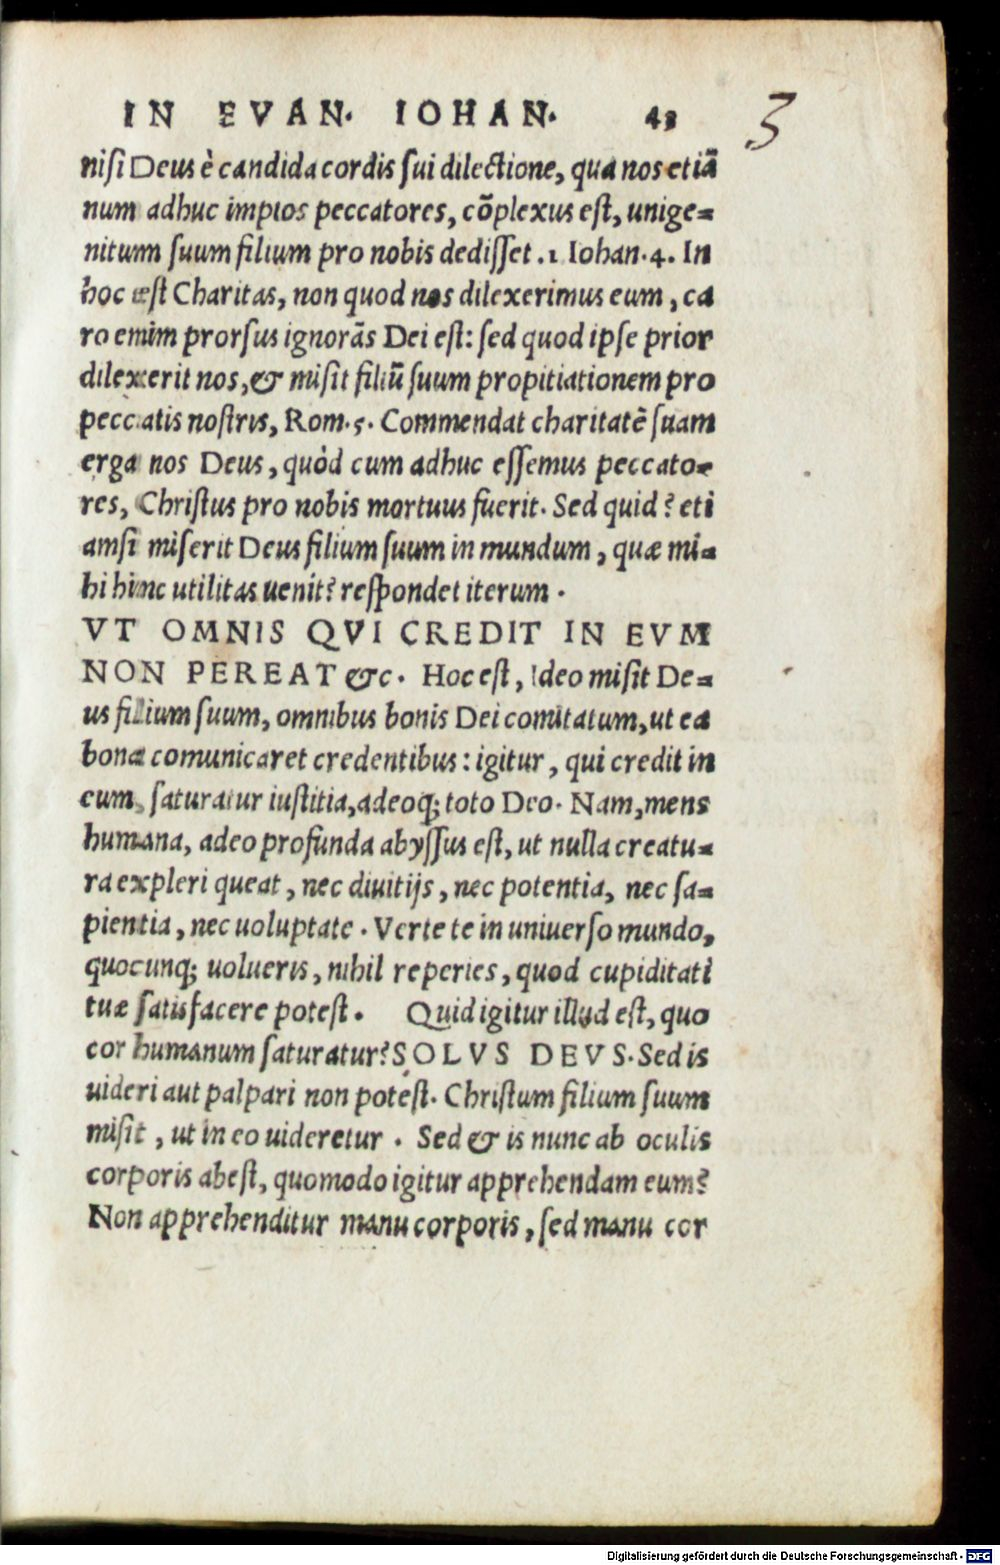 IN EVAN. IOHAN. 43
3
nisi Deus è candida cordis sui dilectione, qua nos etiã
num adhuc impios peccatores, cõplexus est, unige=
nitum suum filium pro nobis dedisset. 1 Iohan. 4. In
hoc est Charitas, non quod nos dilexerimus eum, ca
ro enim prorsus ignorãs Dei est: sed quod ipse prior
dilexerit nos, & misit filiũ suum propitiationem pro
peccatis nostris, Rom. 5. Commendat charitatẽ suam
erga nos Deus, quòd cum adhuc essemus peccato=
res, Christus pro nobis mortuus fuerit. Sed quid? eti
amsi miserit Deus filium suum in mundum, quæ mi=
hi hinc utilitas uenit? respondet iterum.
VT OMNIS QVI CREDIT IN EVM
NON PEREAT &c. Hoc est, Ideo misit De=
us filium suum, omnibus bonis Dei comitatum, ut ea
bona comunicaret credentibus: igitur, qui credit in
eum, saturatur iustitia, adeoq; toto Deo. Nam, mens
humana, adeo profunda abyssus est, ut nulla creatu=
ra expleri queat, nec diuitijs, nec potentia, nec sa=
pientia, nec uoluptate. Verte te in uniuerso mundo,
quocunq; uolueris, nihil reperies, quod cupiditati
tuæ satisfacere potest. Quid igitur illud est, quo
cor humanum saturatur? SOLVS DEVS. Sed is
uideri aut palpari non potest. Christum filium suum
misit, ut in eo uideretur. Sed & is nunc ab oculis
corporis abest, quomodo igitur apprehendam eum?
Non apprehenditur manu corporis, sed manu cor
Digitalisierung gefördert durch die Deutsche Forschungsgemeinschaft - DFG